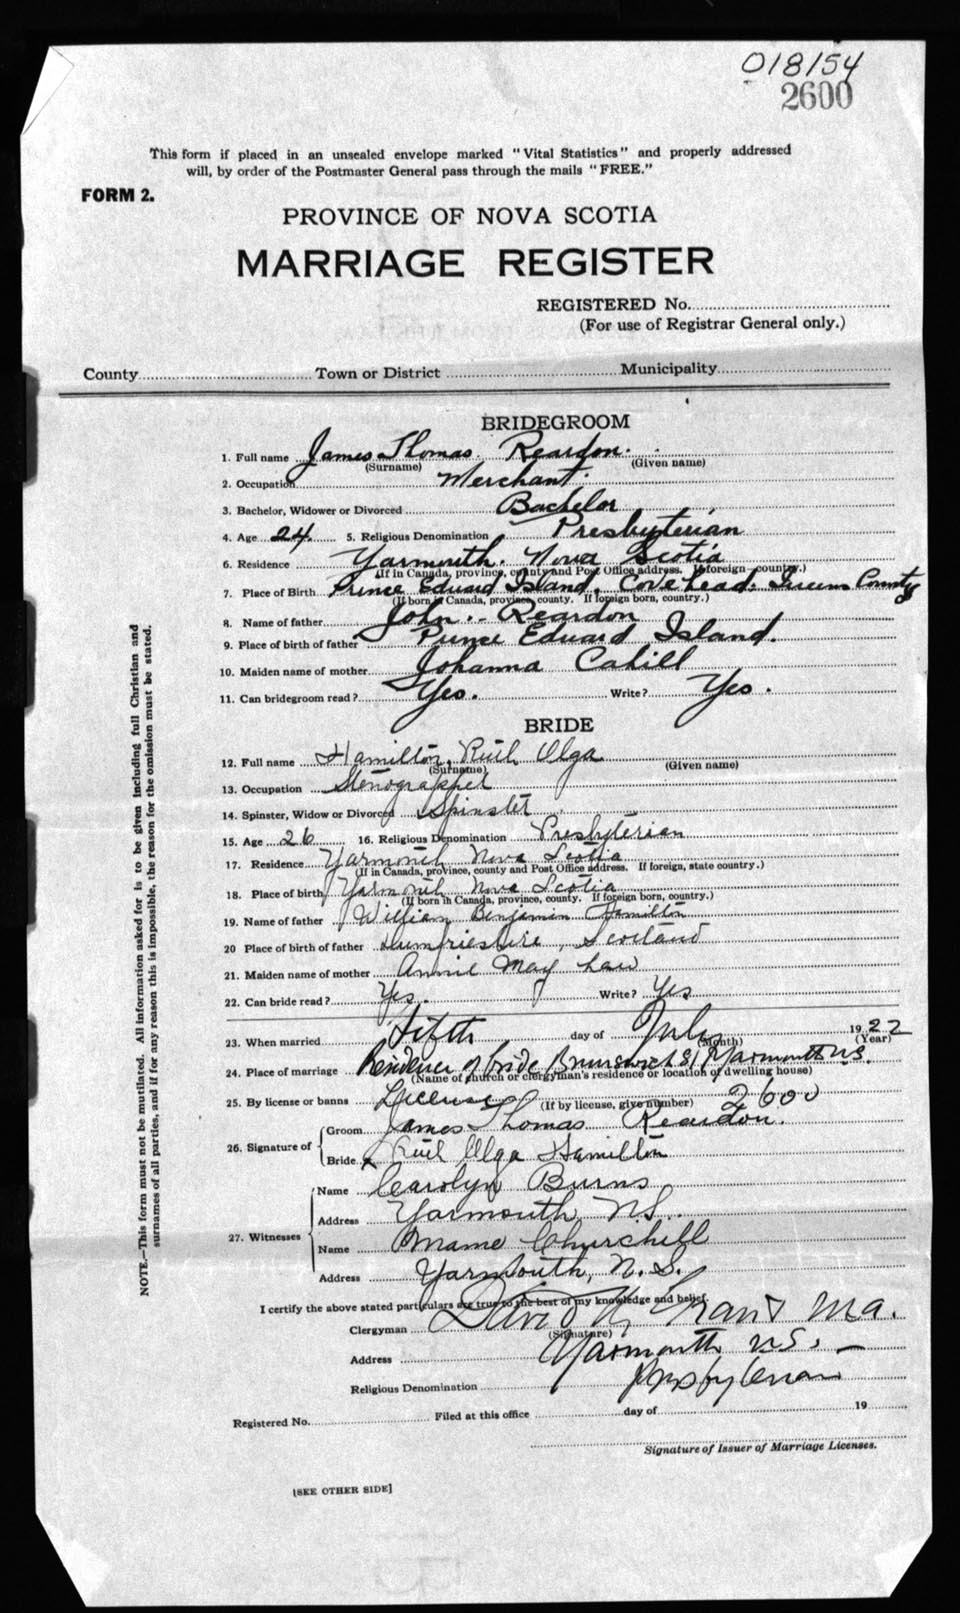 018154
2600
This form if placed in an unsealed envelope marked "Vital Statistics" and properly addressed
will, by order of the Postmaster General pass through the mails "FREE."
FORM 2.
PROVINCE OF NOVA SCOTIA
MARRIAGE REGISTER
REGISTERED No.
(For use of Registrar General only.)
County Town or District Municipality
BRIDEGROOM
1. Full name James Thomas Reardon.
(Surname) (Given name)
2. Occupation Merchant.
3. Bachelor, Widower or Divorced Bachelor
4. Age 24. 5. Religious Denomination Presbyterian
6. Residence Yarmouth. Nova Scotia
(If in Canada, province, county and Post Office address. If foreign country.)
7. Place of Birth Prince Eduard Island. Cove head. Queens County
(If born in Canada, province, county. If foreign born, country.)
8. Name of father John Reardon
9. Place of birth of father Prince Eduard Island.
10. Maiden name of mother Johanna Cahill
11. Can bridegroom read? Yes. Write? Yes.
BRIDE
12. Full name Hamilton, Ruth Olga
(Surname) (Given name)
13. Occupation Stenographer
14. Spinster, Widow or Divorced Spinster
15. Age 26 16. Religious Denomination Presbyterian
17. Residence Yarmouth Nova Scotia
(If in Canada, province, county and Post Office address. If foreign, state country.)
18. Place of birth Yarmouth Nova Scotia
(If born in Canada, province, county. If foreign born, country.)
19. Name of father William Benjamin Hamilton
20 Place of birth of father Dumfriesshire, Scotland
21. Maiden name of mother Annie May Law
22. Can bride read? Yes. Write? Yes
23. When married Fifth day of July 1922
(Month) (Year)
24. Place of marriage Residence of bride Brunswick St Yarmouth N.S.
(Name of church or clergyman's residence or location of dwelling house)
25. By license or banns License (If by license, give number) 2600
26. Signature of Groom James Thomas Reardon.
Bride x Ruth Olga Hamilton
27. Witnesses Name Carolyn Burns
Address Yarmouth N.S.
Name Mame Churchill
Address Yarmouth, N.S.
I certify the above stated particulars are true to the best of my knowledge and belief.
Clergyman David K. Grant M.A.
(Signature)
Address Yarmouth N.S.
Religious Denomination Presbyterian
Registered No. Filed at this office day of 19
Signature of Issuer of Marriage Licenses.
[SEE OTHER SIDE]
NOTE.—This form must not be mutilated. All information asked for is to be given including full Christian and
surnames of all parties, and if for any reason this is impossible, the reason for the omission must be stated.